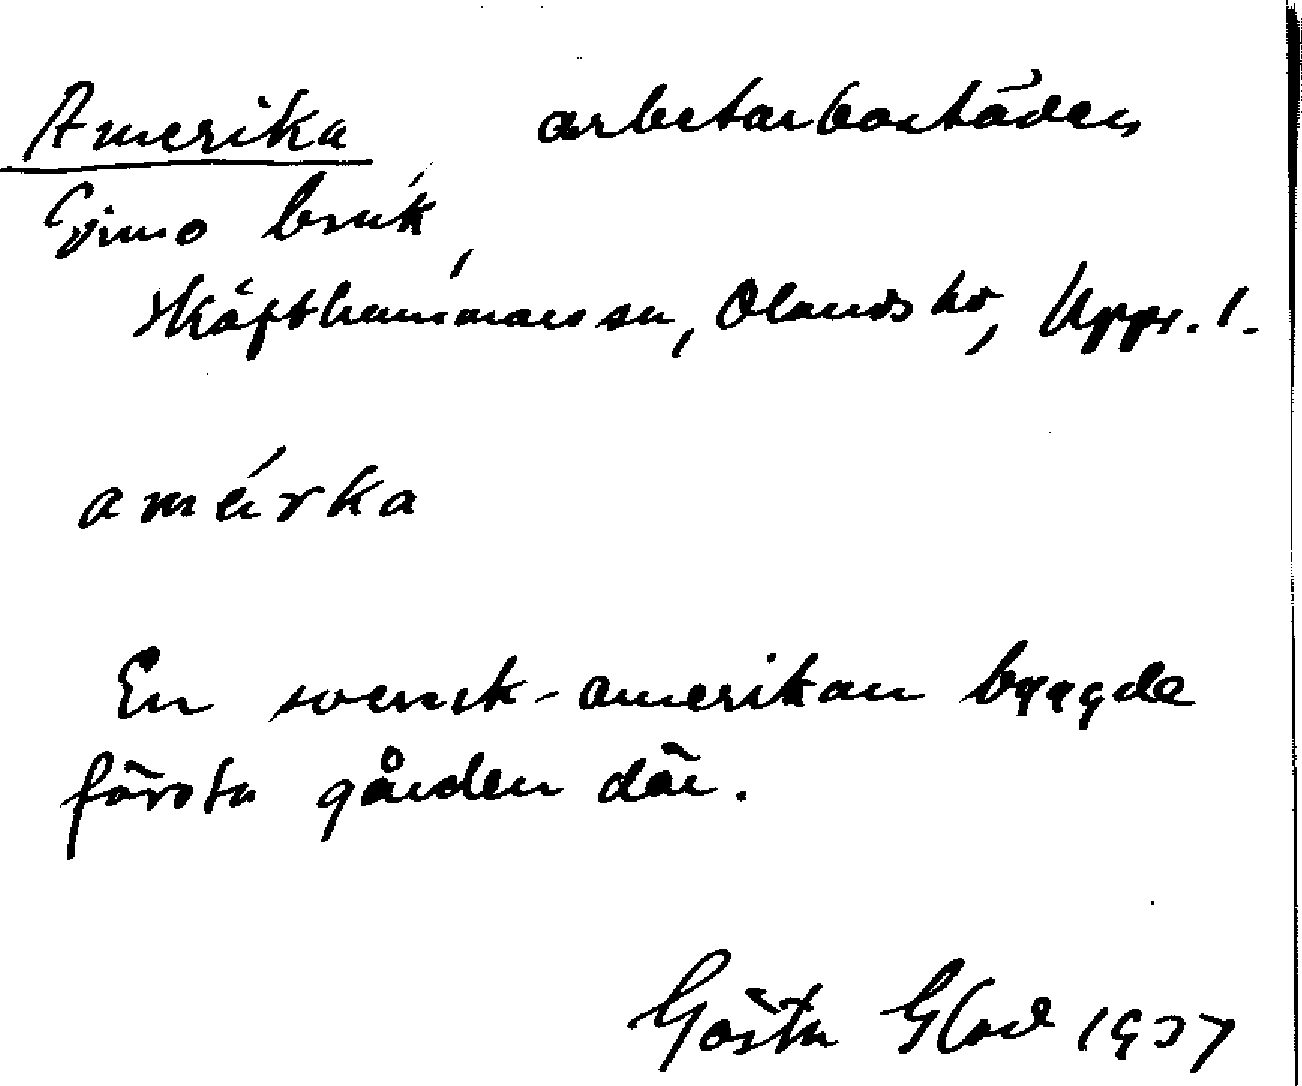 Amerika arbetarbostäder,
Gimo bruk,
Skäfthammars sn, Olands hd, Upps. l.
amérka
En svensk-amerikan byggde
första gården där.
Gösta Glad 1937